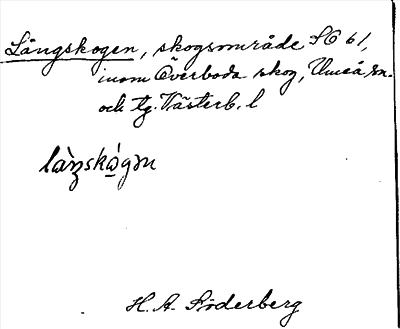 Långskogen, skogsområde SO 61,
inom Överboda skog, Umeå sn.
och tg. Västerb. l
làŋskó̠gən
H. A. Söderberg